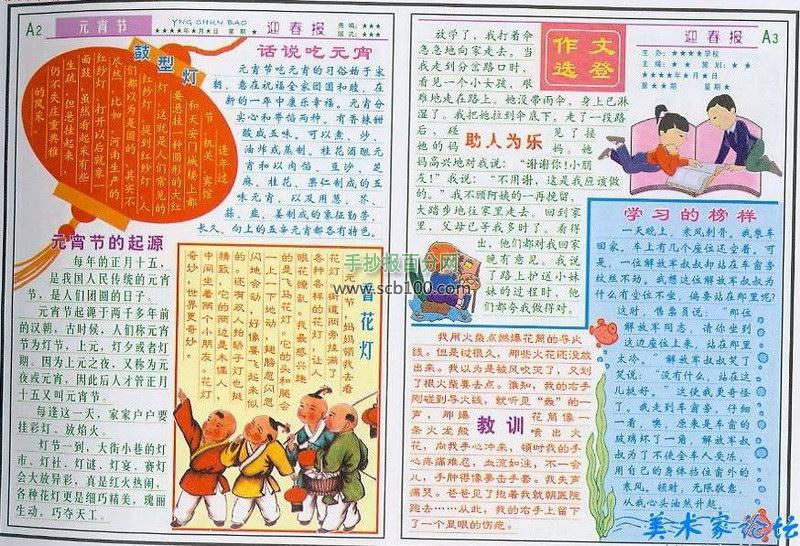 A2
元宵节
YNG CHUN BAO
★★★★年★月★日 星期 ★
迎春报
责编：★★★
版式：★★★
鼓型灯
逢年过
节，机关、宾馆
和天安门城楼上都
要悬挂一种圆形的大红
灯，这就是人们常见的
红纱灯。提到红纱灯，人
们都以为是圆的，其实不
尽然。比如，河南生产的
红纱灯，打开以后就象一
面鼓，虽然看起来有些
生疏，但悬挂起来，
仍不失庄重典雅
的风采。
话说吃元宵
元宵节吃元宵的习俗始于宋
朝，意在祝福全家团圆和睦，在
新的一年中康乐幸福。元宵分
实心和带馅两种，有香辣甜
酸咸五味。可以煮、炒、
油炸或蒸制。桂花酒酿元
宵和以肉馅、豆沙、芝
麻、桂花、果仁制成的五
味元宵，以及用葱、芥、
蒜、韭、姜制成的象征勤劳、
长久、向上的五辛元宵都各有特色。
元宵节的起源
每年的正月十五，
是我国人民传统的元宵
节，是人们团圆的日子。
元宵节起源于两千多年前
的汉朝。古时候，人们称元宵
节为灯节，上元，灯夕或者灯
期。因为上元之夜，又称为元
夜或元宵，因此后人才管正月
十五又叫元宵节。
每逢这一天，家家户户要
挂彩灯、放焰火。
灯节一到，大街小巷的灯
市、灯社、灯谜、灯宴、赛灯
会大放异彩，真是红火热闹，
各种花灯更是细巧精美，瑰丽
生动，巧夺天工。
花灯
元宵节，妈妈领我去看
花灯。街道两旁挂满了
各种各样的花灯，让人
眼花缭乱。我最感兴趣
的是飞马花灯，它的头和腿会
一上一下地动，翅膀忽闪忽
闪地会动，好像要飞起来似
的。还有双人抬轿子灯也挺
精致，它的两边是木偶人，
中间坐着两个小朋友。花灯
奇妙，世界更奇妙。
手抄报百分网
www.scb100.com
放学了，我打着伞
急急地向家走去。当
我走到分岔路口时，
看见一个小女孩，艰
难地走在路上。她没带雨伞，身上已淋
湿了。我把她拉到伞底下。走了一段路
后，碰见了接
她的妈妈。她妈
妈高兴地对我说：“谢谢你！小朋
友！”我说：“不用谢，这是我应该做
的。”我不顾阿姨的一再挽留，
大踏步地往家里走去。回到家
里，父母已等我多时了。看得
出，他们都对我回家
晚有意见。我说
了路上护送小妹
妹的过程时，他
们都夸我做得对。
助人为乐
作文
选登
迎春报
A3
主办：★★★★学校
主编：★★ 策划：★★
★★★★年★月★日
第★★期 星期★
学习的榜样
一天晚上，寒风刺骨。我乘车
回家。车上有几个座位还空着。可
是，一位解放军叔叔却站在车窗旁
纹丝不动。我想这位解放军叔叔为
什么有空位不坐，偏要站在那里呢？
这时，售票员说：“那位
解放军同志，请你坐到
这边座位上来，站在那里
太冷。”解放军叔叔笑了
笑说：“没有什么，站在这
儿挺好。”这使我更奇怪
了。我走到车窗旁，仔细
一看，噢，原来是车窗的
玻璃坏了一角，解放军叔叔
为了不使全车人受冻，
用自己的身体挡住窗外的
寒风。顿时，无限敬意，
从我心头油然升起。
教训
我用火柴点燃爆花筒的导火
线。但是过很久，那些火花还没放
出来。我以为是被风吹灭了，又划
了根火柴要去点。谁知，我的右手
刚碰到导火线，就听见“轰”的一
声，那爆花筒像一
条火龙般喷出火
花，向我手心冲来，顿时我的手
心疼痛难忍，血流如注，不一会
儿，手肿得像要击手套。我失声
痛哭。爸爸见了抱着我就朝医院
跑去……从此，我的右手上留下
了一个显眼的伤疤。
美术家论坛